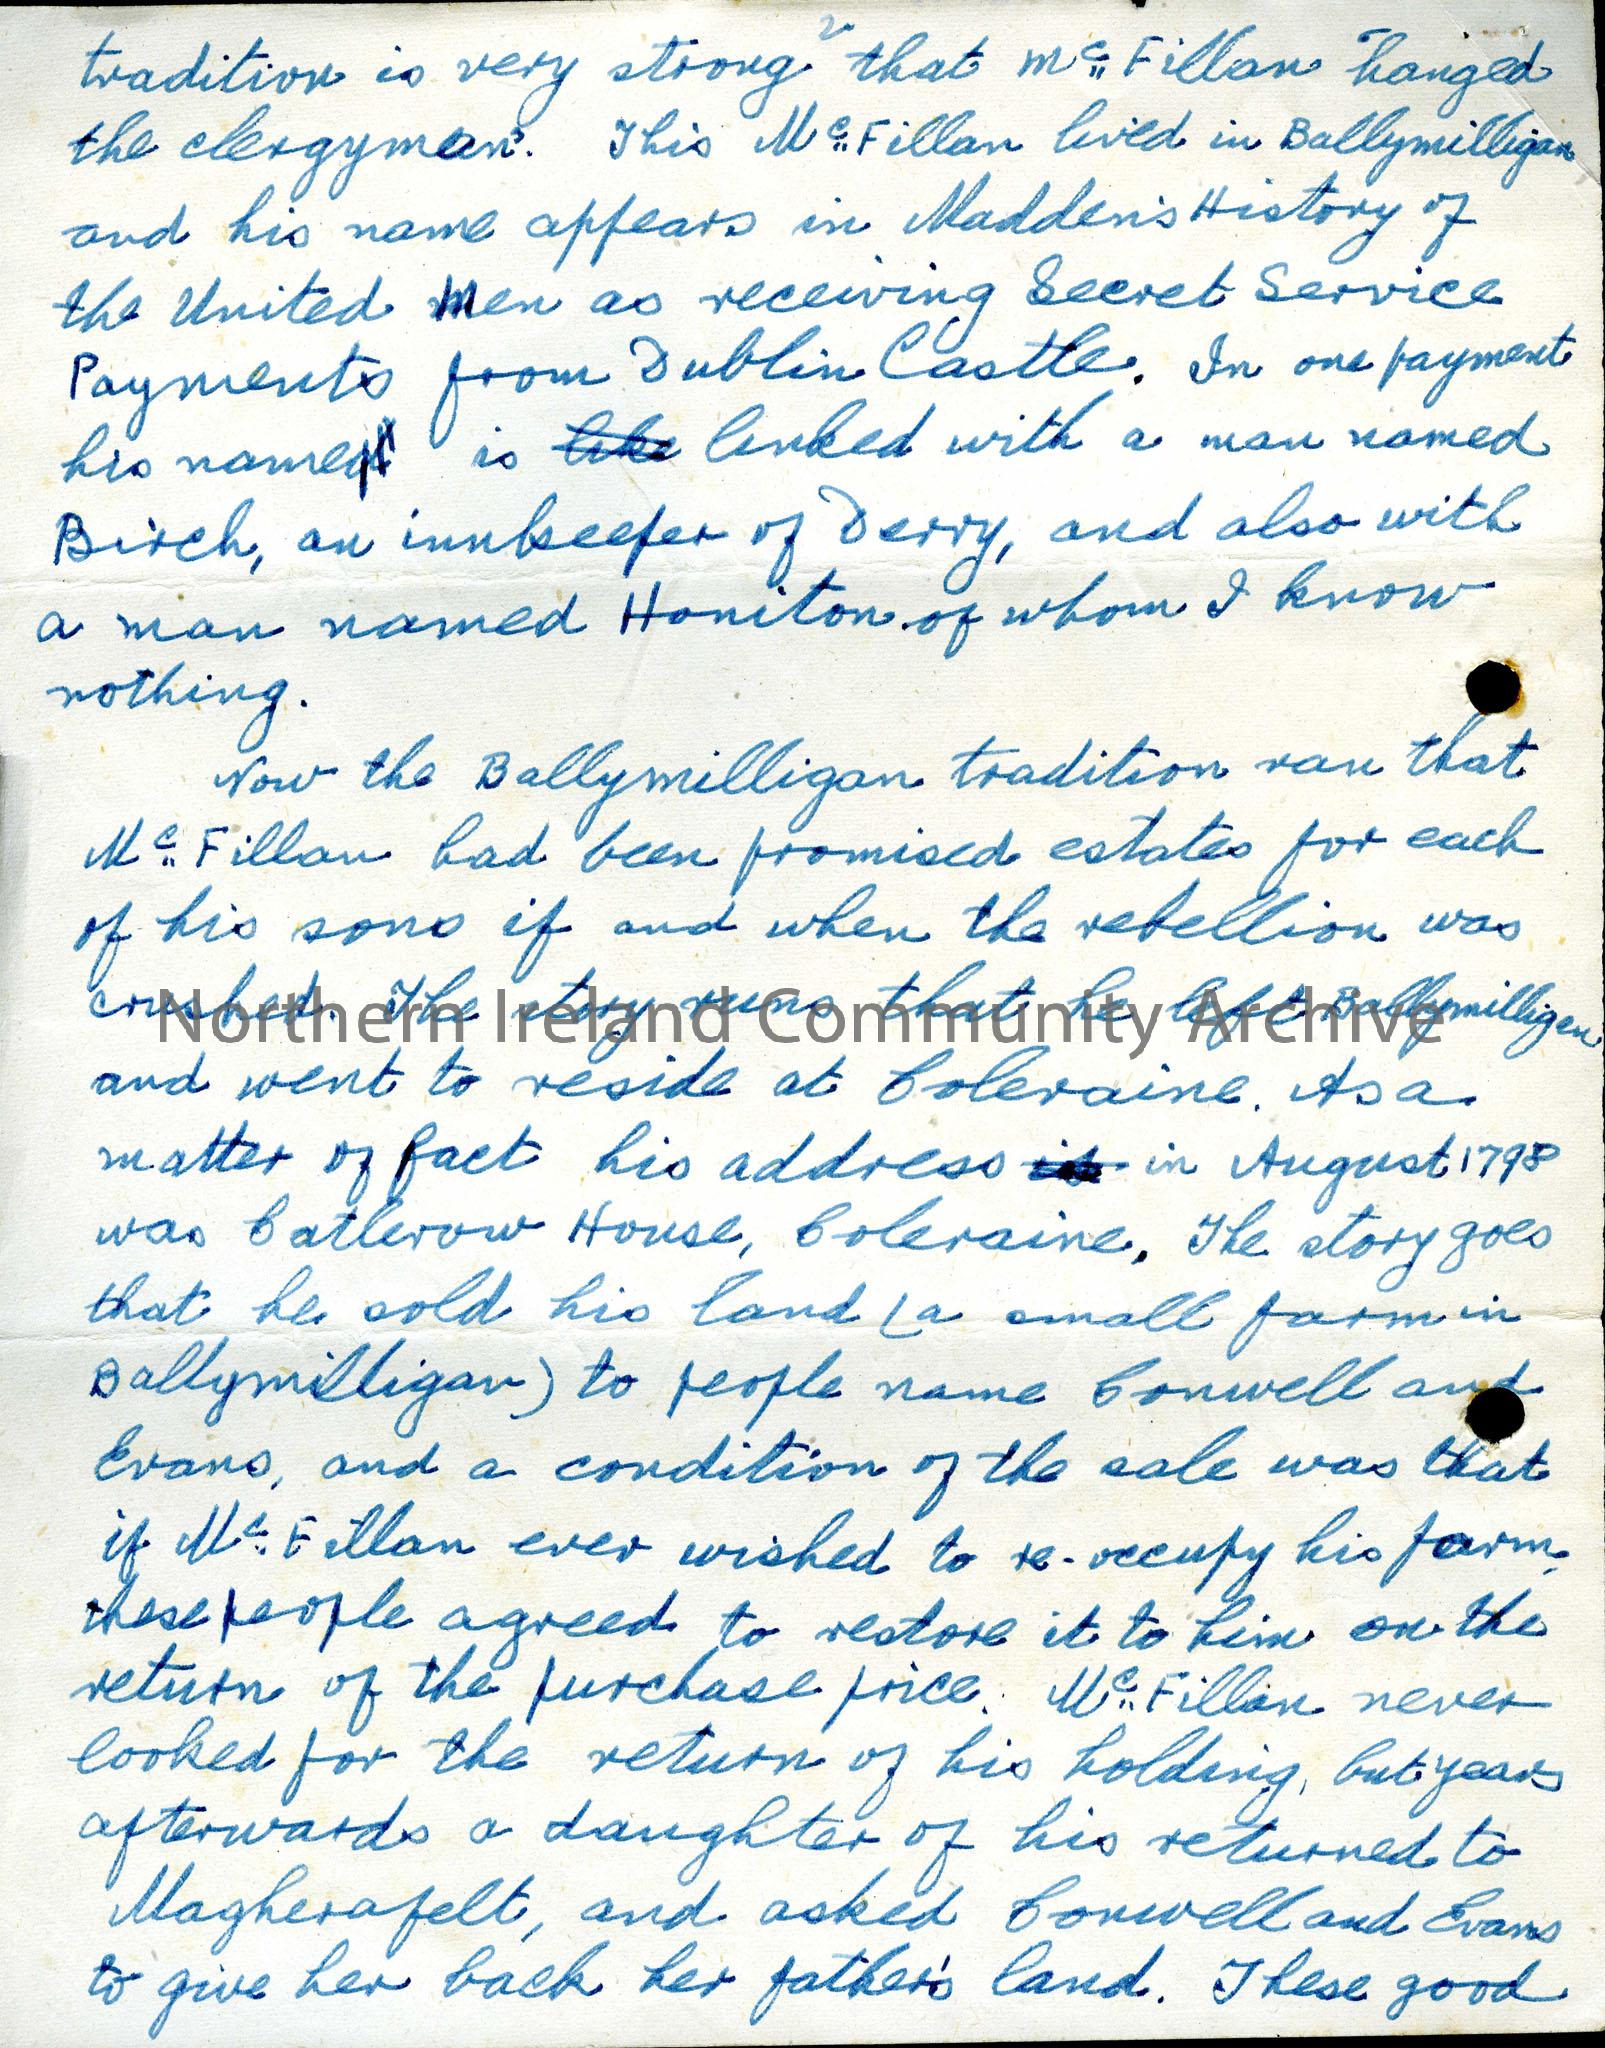 2
tradition is very strong that McFillan "hanged
the clergyman". This McFillan lived in Ballymilligan
and his name appears in Madden's History of
the United Men as receiving Secret Service
Payments from Dublin Castle. In one payment
his name is like linked with a man named
Birch, an innkeeper of Derry, and also with
a man named Honiton of whom I know
nothing.
Now the Ballymilligan tradition ran that
McFillan had been promised estates for each
of his sons if and when the rebellion was
crushed. The story runs that he left Ballymilligan
Northern Ireland Community Archive
and went to reside at Coleraine. As a
matter of fact his address is in August 1798
was Catlerow House, Coleraine. The story goes
that he sold his land (a small farm in
Ballymilligan) to people name Conwell and
Evans, and a condition of the sale was that
if McFillan ever wished to re-occupy his farm,
these people agreed to restore it to him on the
return of the purchase price. McFillan never
looked for the return of his holding, but years
afterwards a daughter of his returned to
Magherafelt, and asked Conwell and Evans
to give her back her father's land. These good